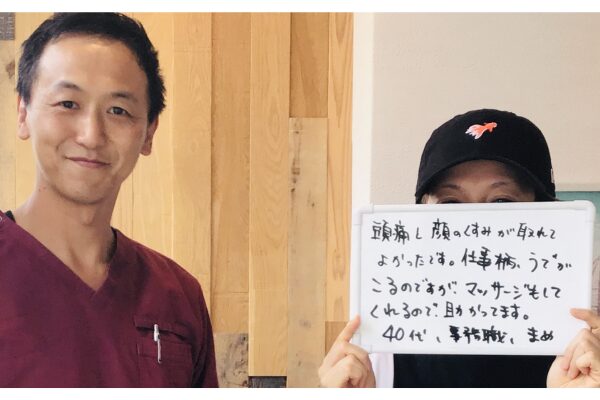 頭痛し顔のくすみが取れて
よかったです。仕事柄、うでが
こるのですが、マッサージもして
くれるので、助かってます。
40代、事務職、まめ